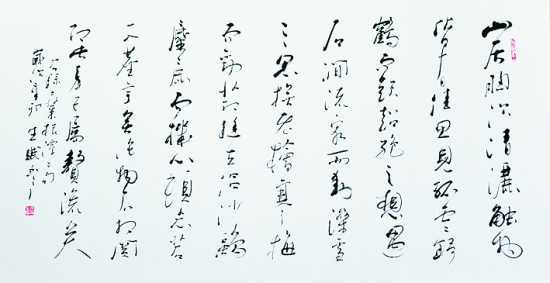 山居胸次清灑觸物
皆有佳思見孤雲野
鶴而起超絕之想遇
石澗流泉而動澡雪
之思撫老檜寒梅
而勁節挺立侶沙鷗
麋鹿而機心頓忘若
一入塵寰無論物不相關
即此身已屬贅旒矣
右錄菜根譚句